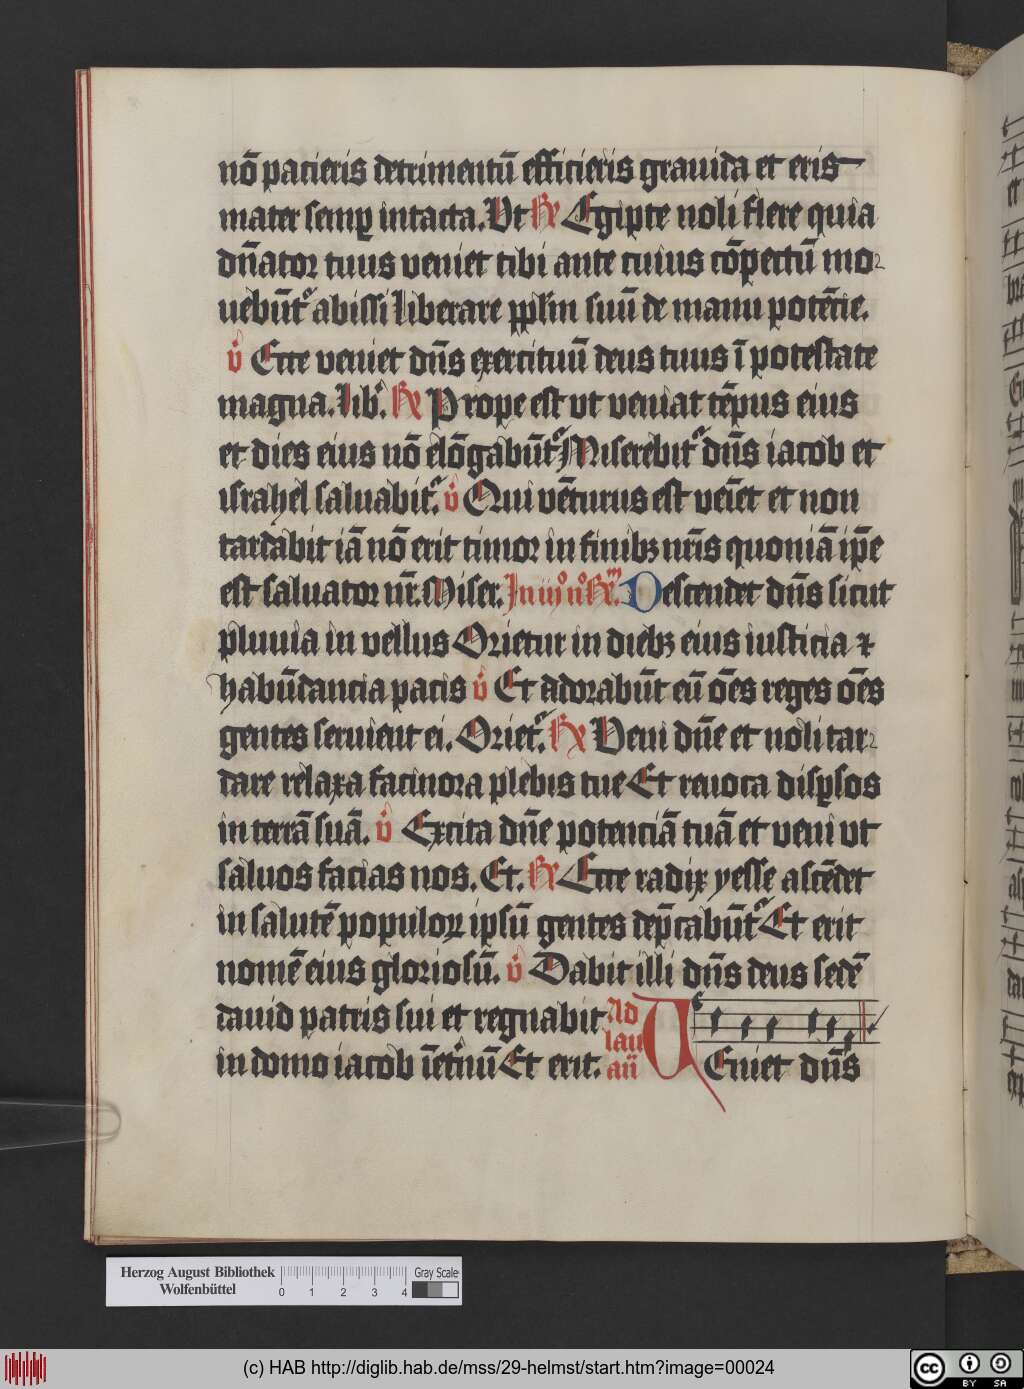 nō pacieris detrimentū efficieris grauida et eris
mater semꝑ intacta. Vt ℟ Egipte noli flere quia
dn̄ator tuus veniet tibi ante cuius cōpectū mo
uebūtᷣ abissi liberare pp̄lm suū de manu potēcie.
v̊ Ecce veniet dn̄s exercituū deus tuus ī potestate
magna. Lib. ℟ Prope est vt veniat tēpus eius
et dies eius nō elōgabūtᷣ Miserebitᷣ dn̄s iacob et
israhel saluabitᷣ. v̊ Qui vēturus est veīet et non
tardabit iā nō erit timor in finibꝫ nr̄is quoniā ip̄e
est saluator nr̄. Miser. In iijo no ℟m. Descendet dn̄s sicut
pluuia in vellus Orietur in diebꝫ eius iusticia ⁊
habūdancia pacis v̊ Et adorabūt eū oēs reges oēs
gentes seruient ei. Orietᷣ. ℟ Veni dn̄e et noli tar
dare relaxa facinora plebis tue Et reuoca disꝑsos
in terrā suā. v̊ Excita dn̄e potenciā tuā et veni vt
saluos facias nos. Et. ℟ Ecce radix yesse ascēdet
in salutē populoꝝ ipsū gentes dep̄cabūtᷣ Et erit
nomē eius gloriosū. v̊ Dabit illi dn̄s deus sedē
dauid patris sui et regnabit Ad
in domo iacob īet̓nū Et erit. lau
an̄ VEniet dn̄s
Herzog August Bibliothek
Wolfenbüttel
0 1 2 3 4
Gray Scale
(c) HAB http://diglib.hab.de/mss/29-helmst/start.htm?image=00024
cc BY SA